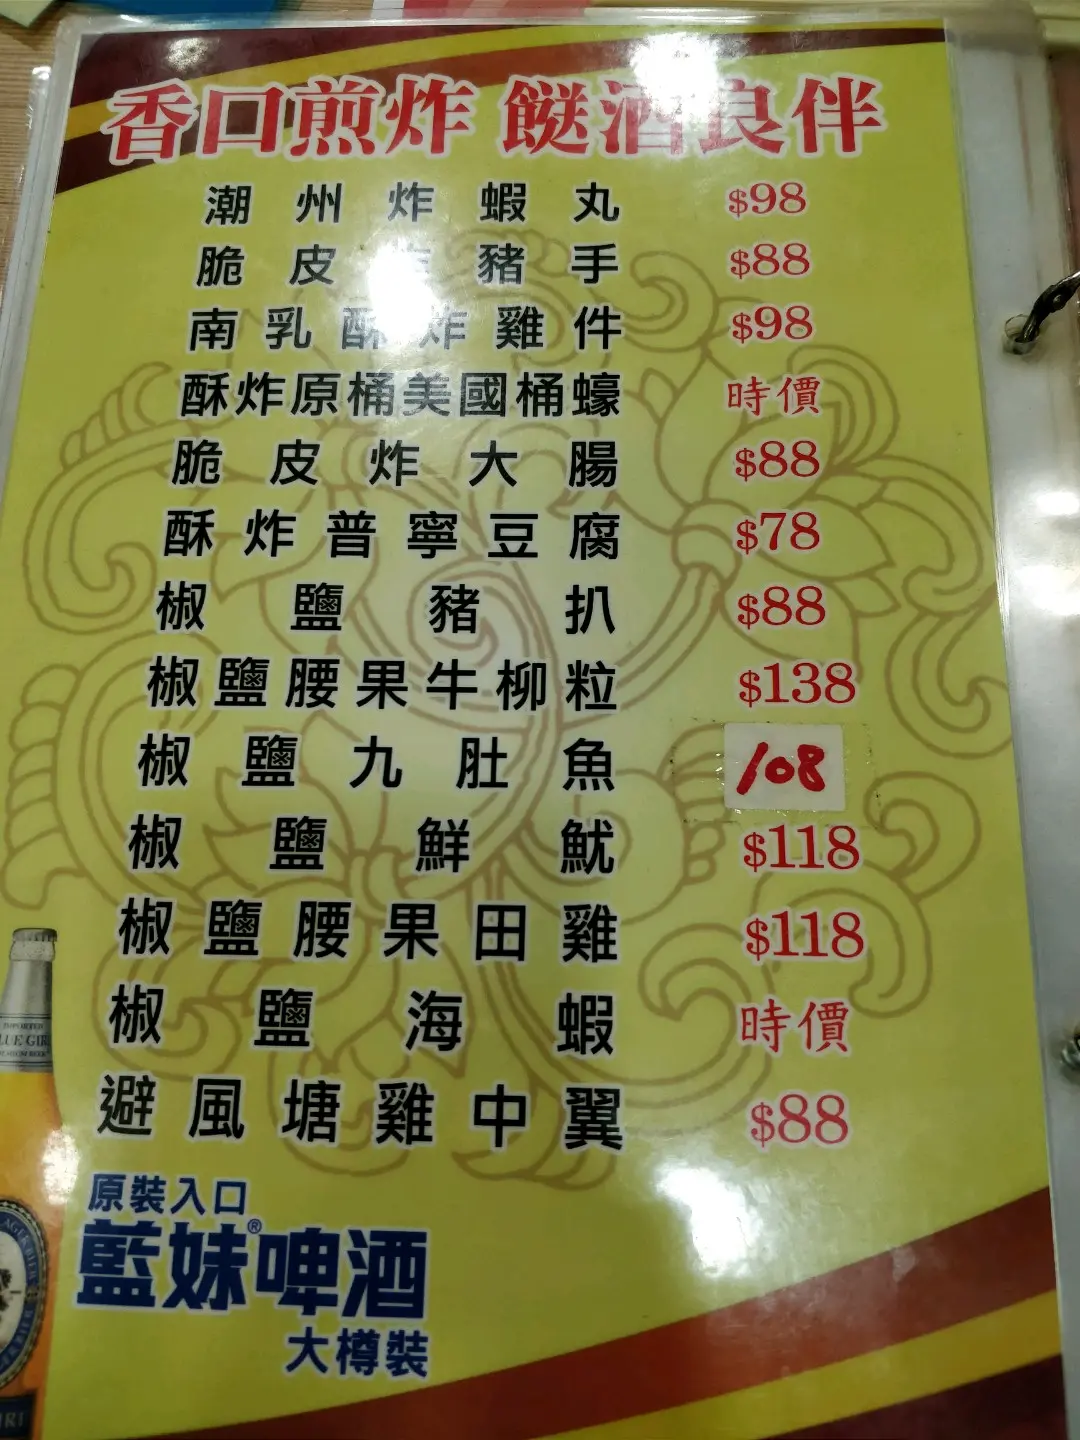 香口煎炸 餸酒良伴
潮州炸蝦丸 $98
脆皮 豬手 $88
南乳酥炸雞件 $98
酥炸原桶美國桶蠔 時價
脆皮炸大腸 $88
酥炸普寧豆腐 $78
椒鹽豬扒 $88
椒鹽腰果牛柳粒 $138
椒鹽九肚魚 108
椒鹽鮮魷 $118
椒鹽腰果田雞 $118
椒鹽海蝦 時價
避風塘雞中翼 $88
原裝入口
藍妹®啤酒
大樽裝
IMPORTED
LUE GIR
LAGER BIER
IRI